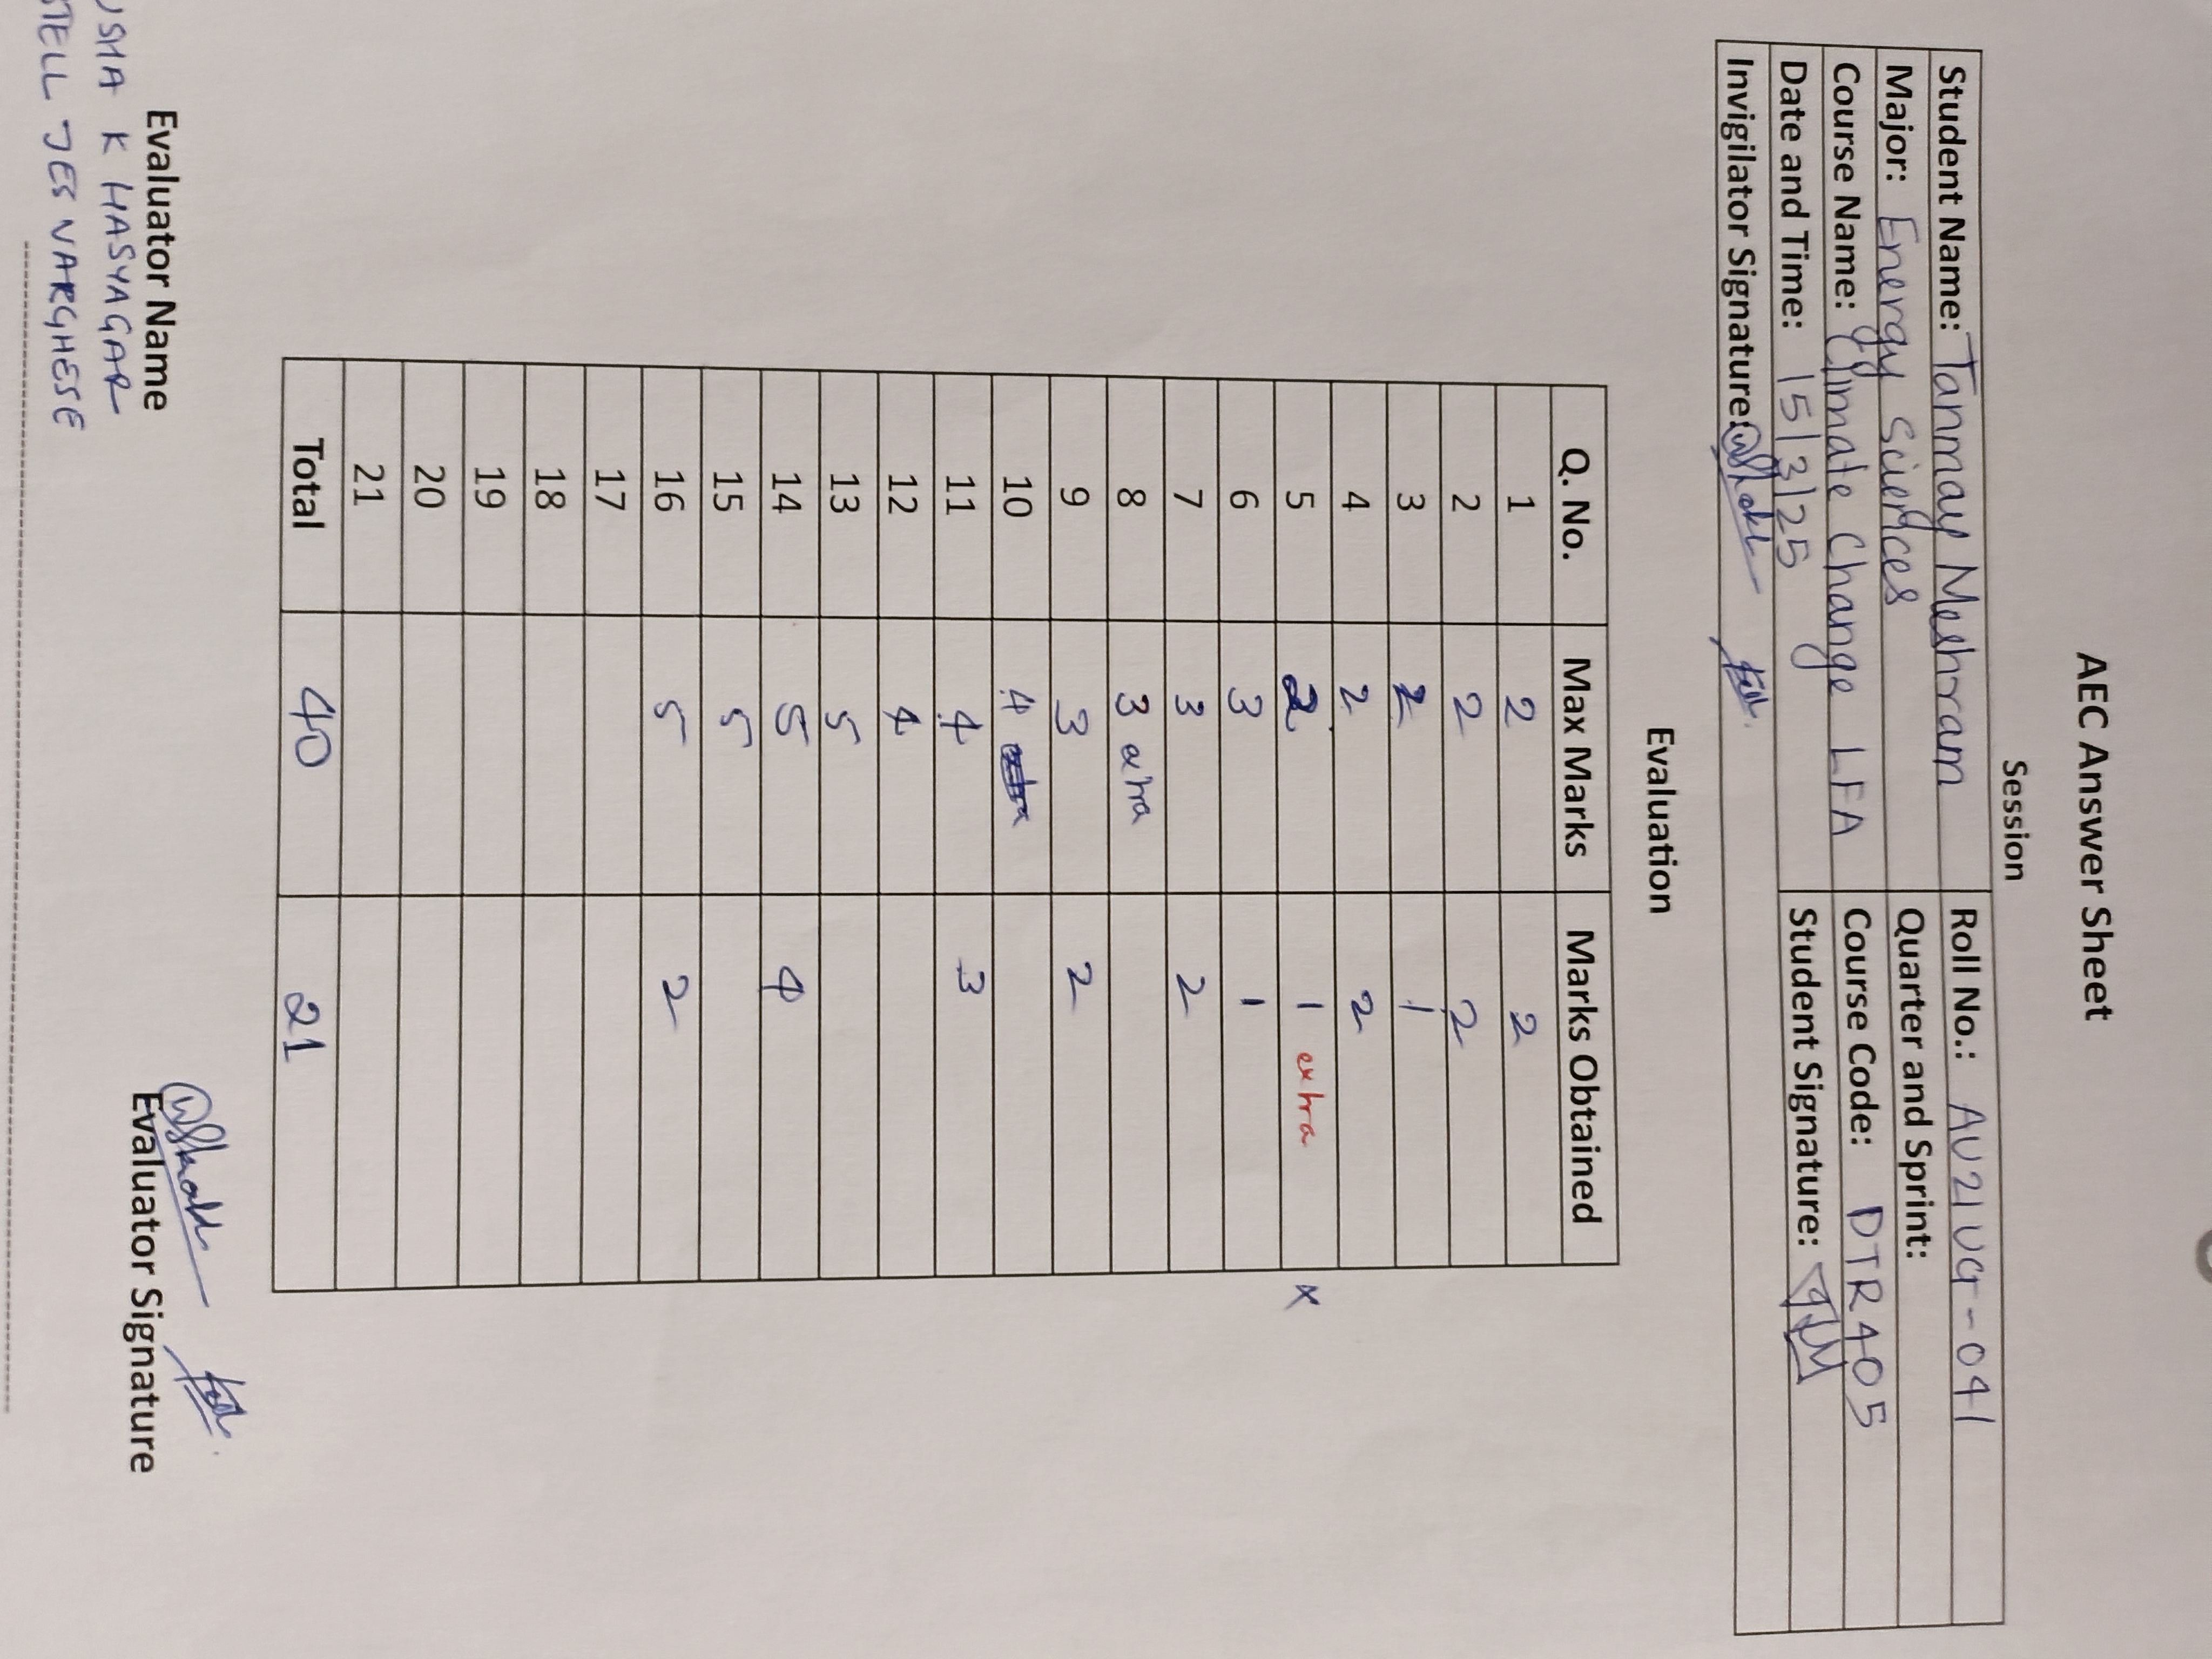 AEC Answer Sheet
Session
Student Name: Tanmay Meshram Roll No.: AU21UG-041
Major: Energy Sciences Quarter and Sprint:
Course Name: Climate Change LFA Course Code: DTR405
Date and Time: 15/3/25 Student Signature:
Invigilator Signature:
Evaluation
Q. No. Max Marks Marks Obtained
1 2 2
2 2 2
3 2 1
4 2 2
5 2 1 extra x
6 3 1
7 3 2
8 3 extra
9 3 2
10 4
11 4 3
12 4
13 5
14 5 4
15 5
16 5 2
17
18
19
20
21
Total 40 21
Evaluator Name Evaluator Signature
K HASYAGAR
JES VARGHESE